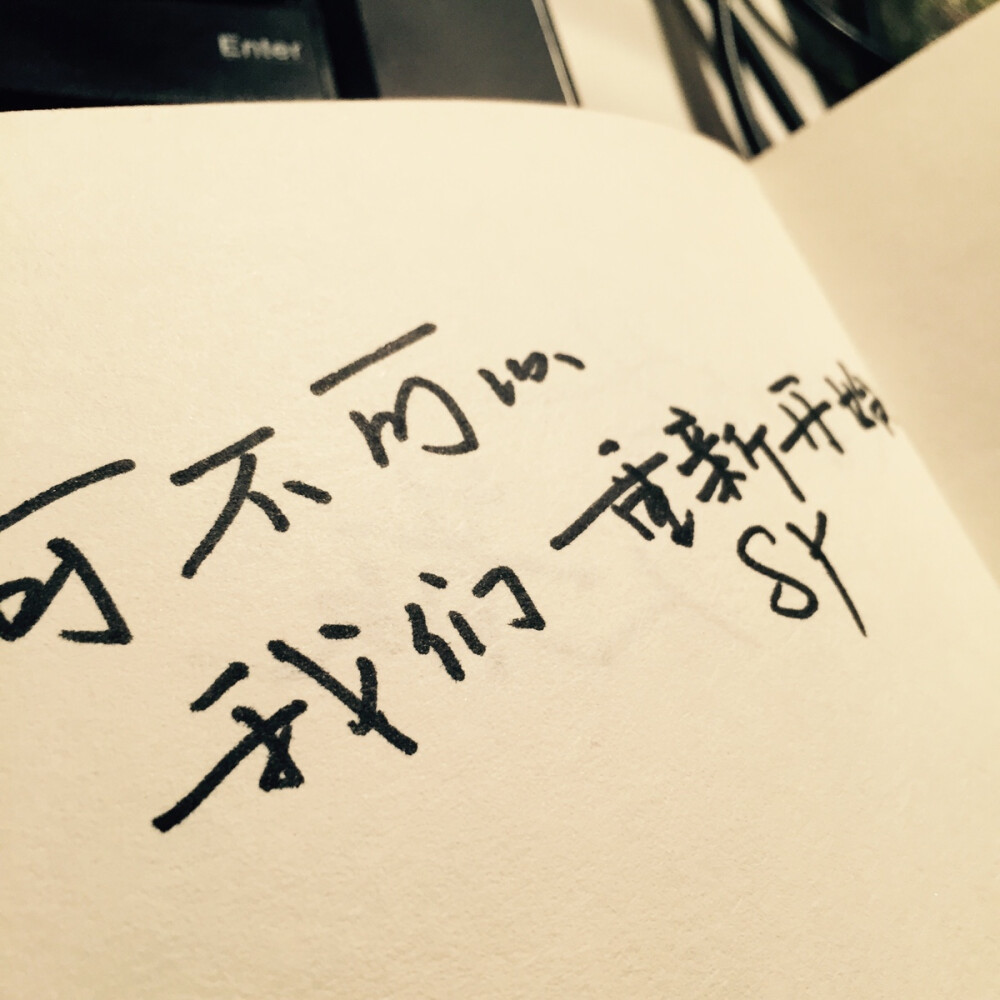 Enter
可不可以
我们重新开始
SY